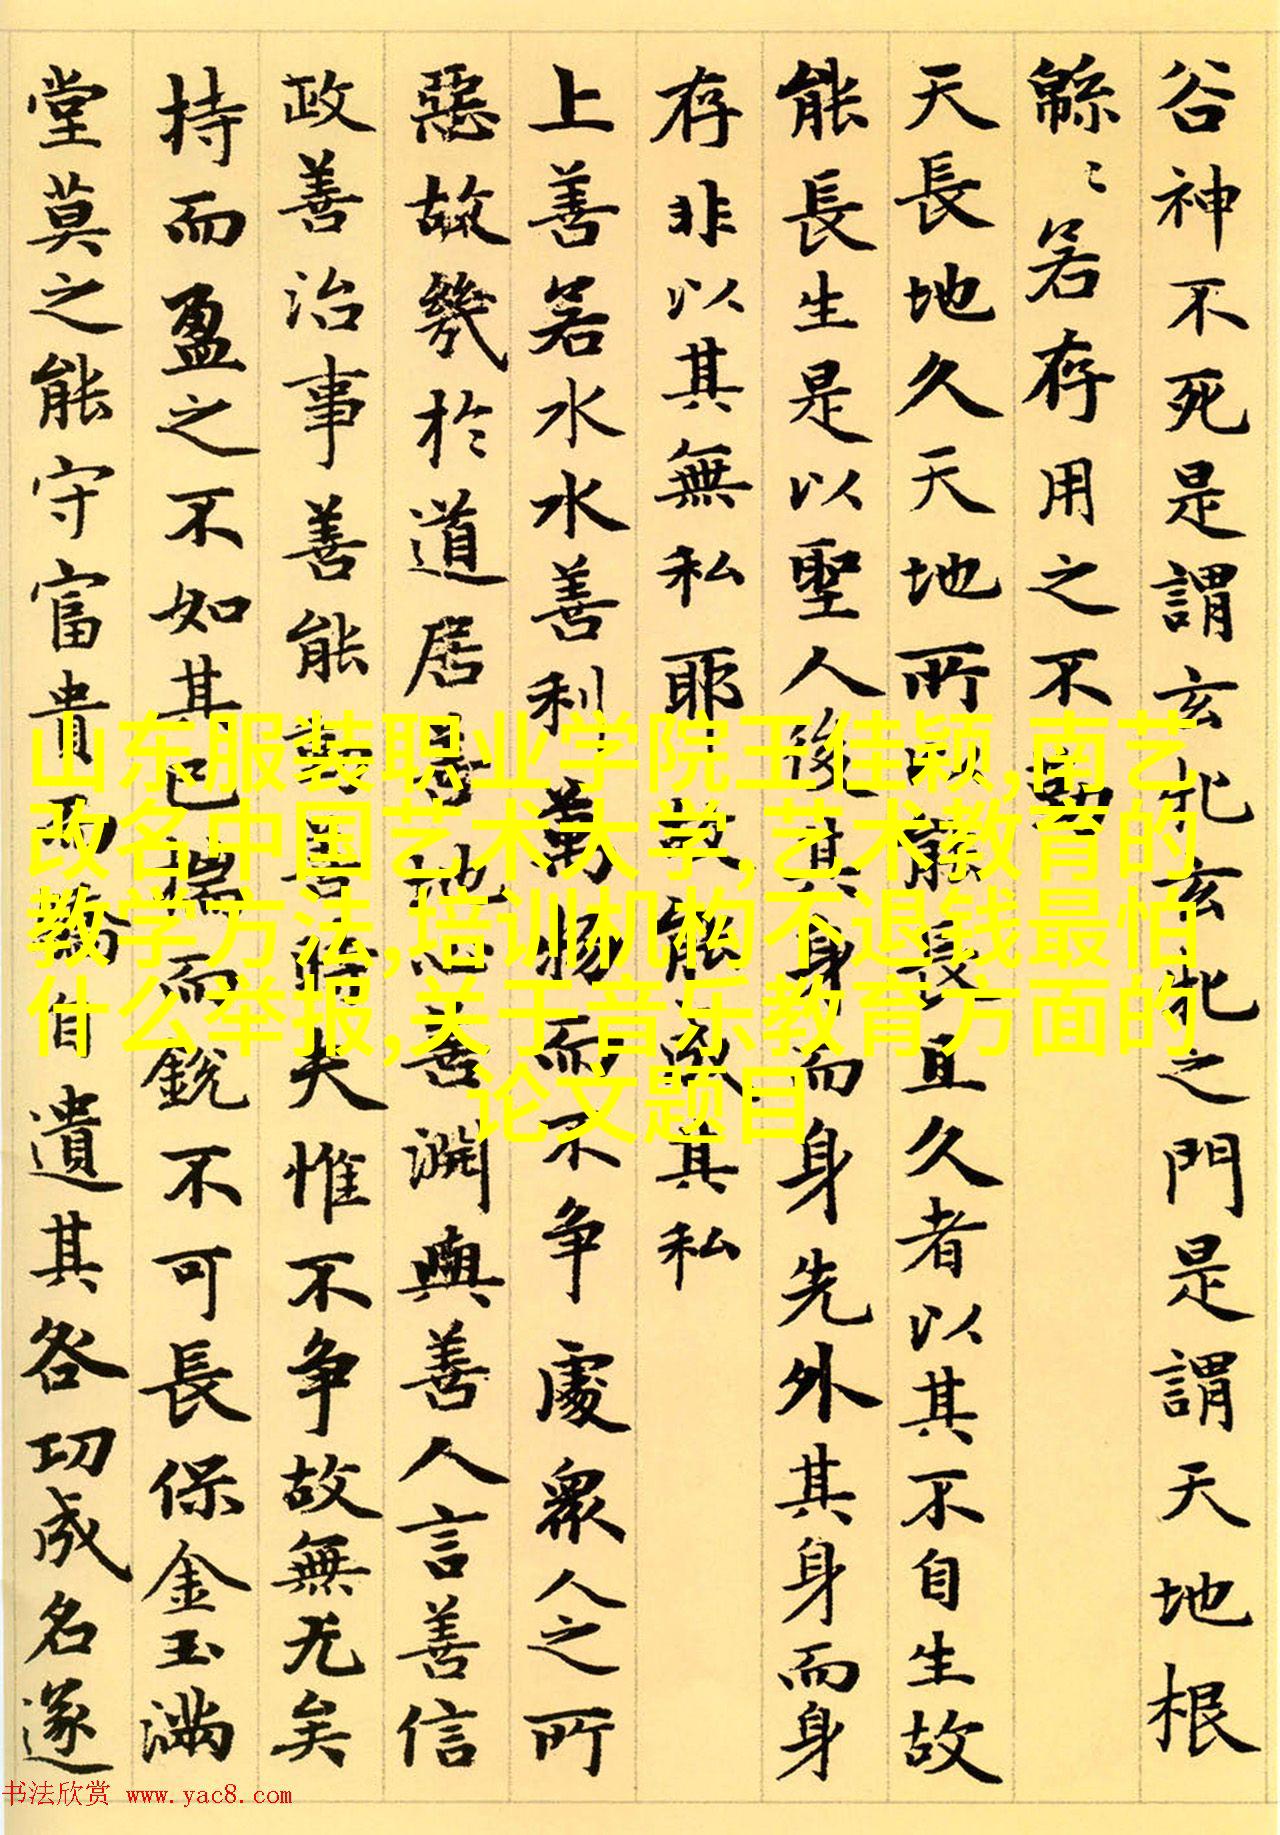 谷神不死是謂玄牝玄牝之門是謂天地根
緜〻若存用之不勤
天長地久天地所以能長且久者以其不自生故
能長生是以聖人後其身而身先外其身而身
存非以其無私耶故能成其私
上善若水水善利萬物而不争處衆人之所
惡故幾於道居善地心善淵與善人言善信
政善治事善能動善時夫惟不争故無尤矣
持而盈之不如其已揣而銳不可長保金玉滿
堂莫之能守富貴而驕自遺其咎功成名遂
山东服装职业学院王佳颖,南艺
改名中国艺术大学,艺术教育的
教学方法,培训机构不退钱最怕
什么举报,关于音乐教育方面的
论文题目
书法欣赏 www.yac8.com